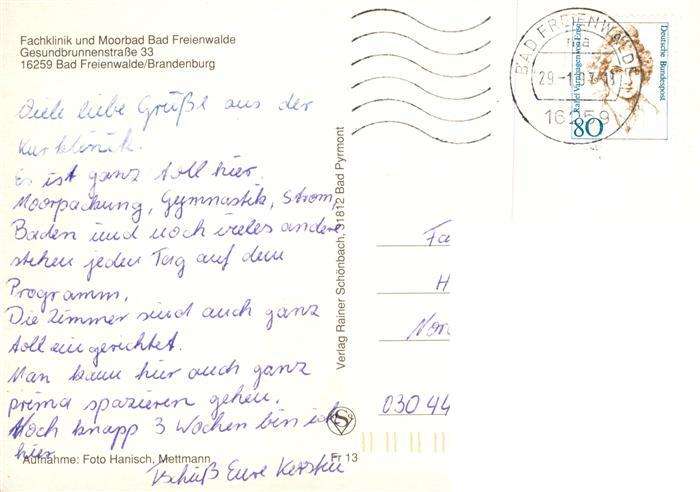 Fachklinik und Moorbad Bad Freienwalde
Gesundbrunnenstraße 33
16259 Bad Freienwalde/Brandenburg
Viele liebe Grüße aus der
Kurklinik.
Es ist ganz toll hier.
Moorpackung, Gymnastik, Strom,
Baden und noch vieles andere
stehen jeden Tag auf dem
Programm.
Die Zimmer sind auch ganz
toll eingerichtet.
Man kann hier auch ganz
prima spazieren gehen.
Noch knapp 3 Wochen bin ich
hier.
Tschüß Eure Kerstin
Aufnahme: Foto Hanisch, Mettmann
Fr 13
Verlag Rainer Schönbach, 31812 Bad Pyrmont
S
BAD FREIENWALDE
16259
Deutsche Bundespost
Rahel Varnhagen von Ense
80
Fa
H
03044